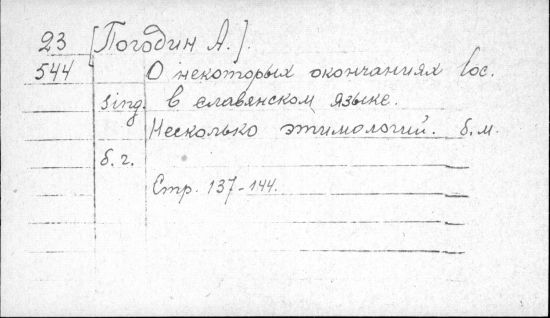 23 [Погодин А.].
544 О некоторых окончаниях loc.
sing. в славянском языке.
Несколько этимологий. б.м.
б.г.
Стр. 137-144.